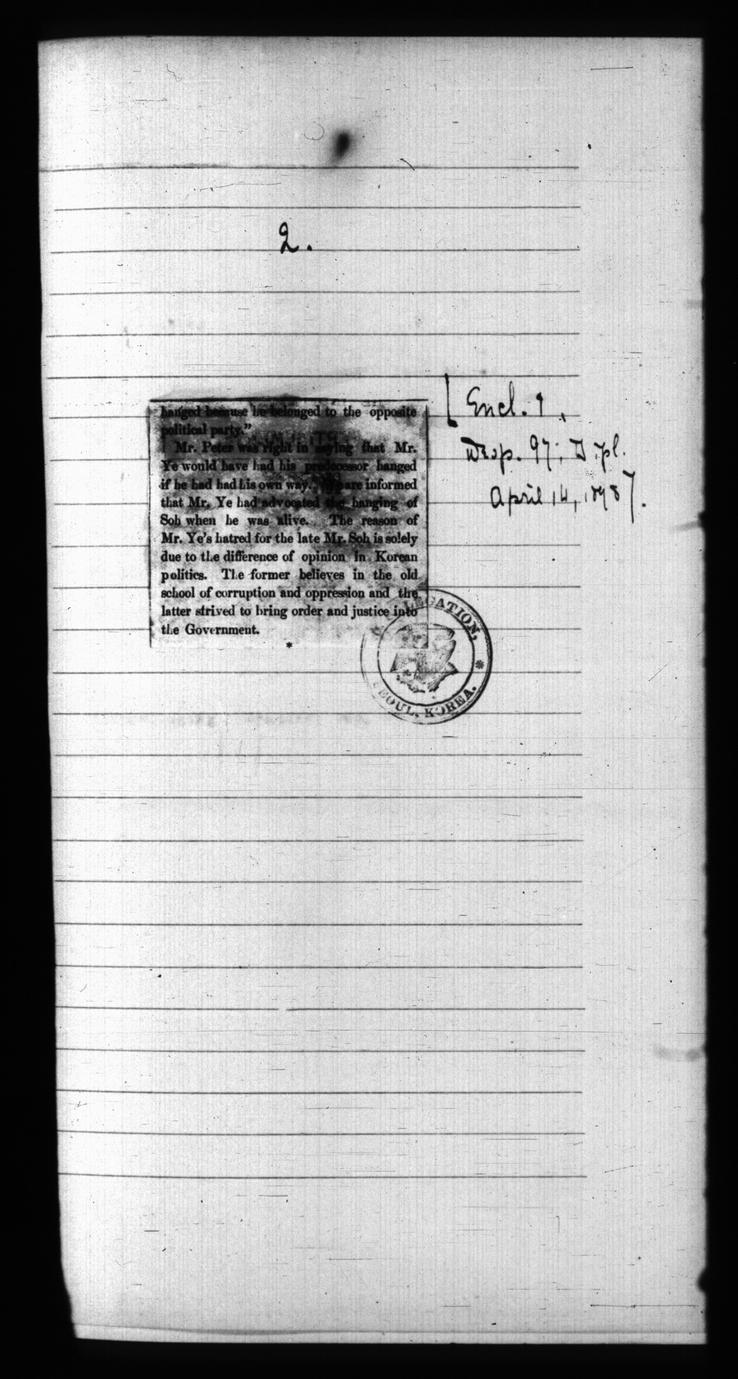 2.
hanged because he belonged to the opposite
political party."
Mr. Peter was right in saying that Mr.
Ye would have had his predecessor hanged
if he had had his own way. We are informed
that Mr. Ye had advocated the hanging of
Soh when he was alive. The reason of
Mr. Ye's hatred for the late Mr. Soh is solely
due to the difference of opinion in Korean
politics. The former believes in the old
school of corruption and oppression and the
latter strived to bring order and justice into
the Government.
*
[Encl. 1,
Desp. 97, Dipl.
April 14, 1898].
GATION,
EOUL, KOREA. *